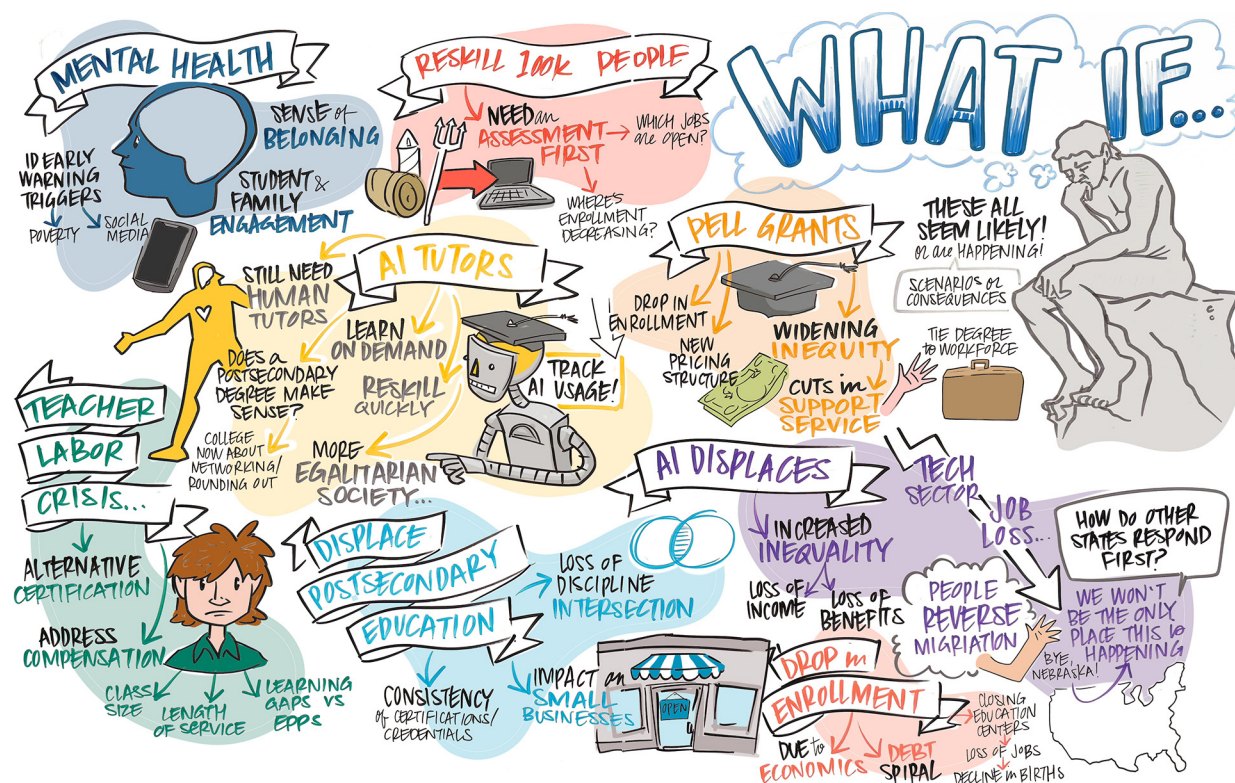 MENTAL HEALTH
SENSE of
BELONGING
ID EARLY
WARNING
TRIGGERS
POVERTY
SOCIAL
MEDIA
STUDENT &
FAMILY
ENGAGEMENT
RESKILL 100K PEOPLE
NEED an
ASSESSMENT
FIRST
WHICH JOBS
are OPEN?
WHERE'S
ENROLLMENT
DECREASING?
WHAT IF...
THESE ALL
SEEM LIKELY!
or are HAPPENING!
SCENARIOS or
CONSEQUENCES
TIE DEGREE
to WORKFORCE
AI TUTORS
STILL NEED
HUMAN
TUTORS
LEARN
ON DEMAND
DOES a
POSTSECONDARY
DEGREE MAKE
SENSE?
RESKILL
QUICKLY
COLLEGE
NOW ABOUT
NETWORKING/
ROUNDING OUT
MORE
EGALITARIAN
SOCIETY...
TRACK
AI USAGE!
PELL GRANTS
DROP IN
ENROLLMENT
NEW
PRICING
STRUCTURE
WIDENING
INEQUITY
CUTS in
SUPPORT
SERVICE
TEACHER
LABOR
CRISIS...
ALTERNATIVE
CERTIFICATION
ADDRESS
COMPENSATION
CLASS
SIZE
LENGTH
OF SERVICE
LEARNING
GAPS VS
EPPS
DISPLACE
POSTSECONDARY
EDUCATION
LOSS OF
DISCIPLINE
INTERSECTION
CONSISTENCY
of CERTIFICATIONS/
CREDENTIALS
IMPACT on
SMALL
BUSINESSES
OPEN
AI DISPLACES
INCREASED
INEQUALITY
LOSS of
INCOME
LOSS of
BENEFITS
TECH
SECTOR
JOB
LOSS...
PEOPLE
REVERSE
MIGRATION
BYE,
NEBRASKA!
HOW DO OTHER
STATES RESPOND
FIRST?
WE WON'T
BE THE ONLY
PLACE THIS is
HAPPENING
DROP in
ENROLLMENT
DUE to
ECONOMICS
DEBT
SPIRAL
CLOSING
EDUCATION
CENTERS
LOSS of JOBS
DECLINE in BIRTHS